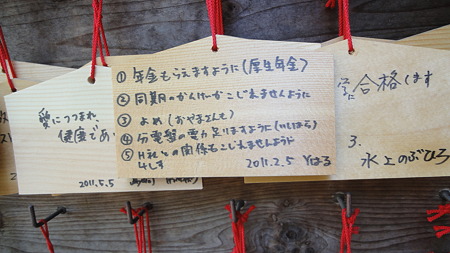 ① 年金もらえますように(厚生年金)
② 同期のかんけーがこじれませんように
③ よめ(おやまともに)
④ 分電盤の電力足りますように(いしはら)
⑤ H社との関係もこじれませんように
2011.2.5 Yはる
愛につつまれ、
健康であ
2011.5.5
合格します
3.
水上のぶひろ